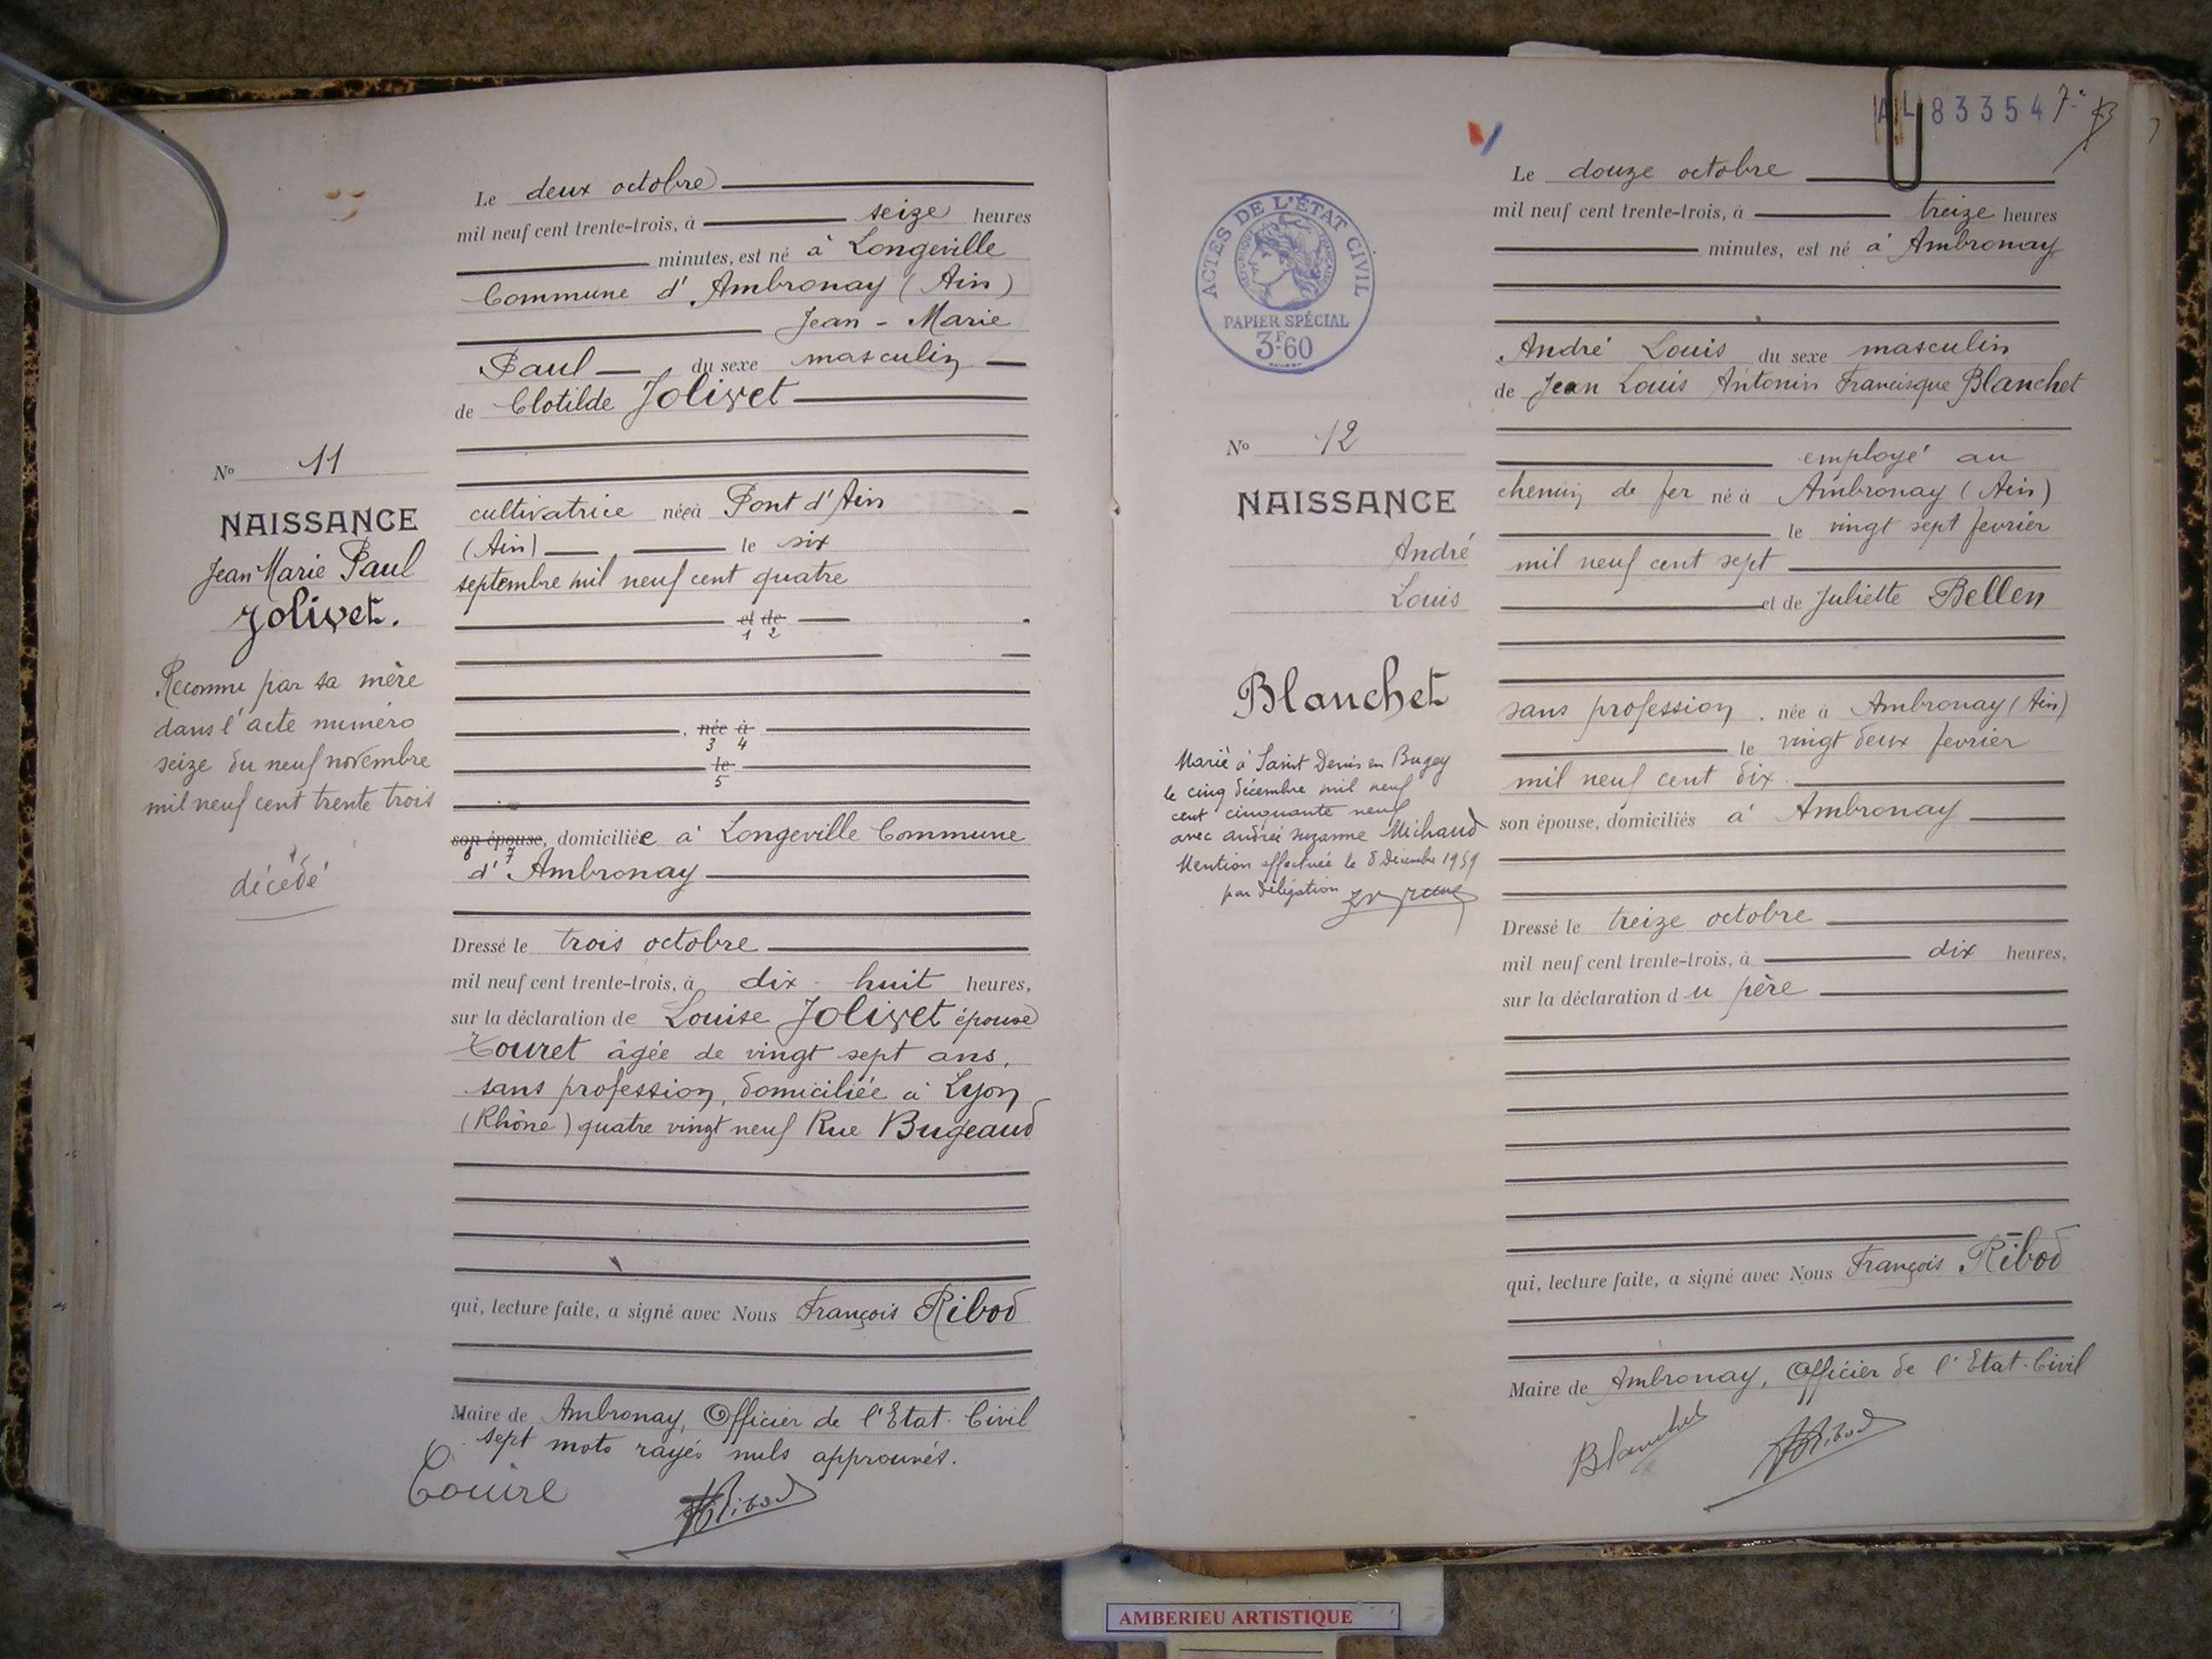 Le deux octobre
mil neuf cent trente-trois, à seize heures
minutes, est né à Longeville
Commune d'Ambronay (Ain)
Jean - Marie
Paul, du sexe masculin
de Clotilde Jolivet
cultivatrice née à Pont d'Ain
(Ain), le six
septembre mil neuf cent quatre
et de
1 2
, née à
3 4
le
5
son épouse, domiciliée à Longeville Commune
6 7
d'Ambronay
Dressé le trois octobre
mil neuf cent trente-trois, à dix-huit heures,
sur la déclaration de Louise Jolivet épouse
Touret âgée de vingt sept ans,
sans profession, domiciliée à Lyon
(Rhône) quatre vingt neuf Rue Bugeaud
qui, lecture faite, a signé avec Nous François Ribod
Maire de Ambronay, Officier de l'Etat-Civil
sept mots rayés nuls approuvés.
Ribod
No 11
NAISSANCE
Jean Marie Paul
Jolivet.
Reconnu par sa mère
dans l'acte numéro
seize du neuf novembre
mil neuf cent trente trois
décédé
AL 833547
ACTES DE L'ÉTAT CIVIL
RÉPUBLIQUE FRANÇAISE
PAPIER SPÉCIAL
3F60
No 12
NAISSANCE
André
Louis
Blanchet
Marié à Saint Denis en Bugey
le cinq décembre mil neuf
cent cinquante neuf
avec andrée suzanne Michaud
Mention effectuée le 8 Décembre 1959
par délégation
Le douze octobre
mil neuf cent trente-trois, à treize heures
minutes, est né à Ambronay
André Louis du sexe masculin
de Jean Louis Antonin Francisque Blanchet
employé au
chemin de fer né à Ambronay (Ain)
le vingt sept fevrier
mil neuf cent sept
et de Juliette Bellen
sans profession, née à Ambronay (Ain)
le vingt deux fevrier
mil neuf cent dix
son épouse, domiciliés à Ambronay
Dressé le treize octobre
mil neuf cent trente-trois, à dix heures,
sur la déclaration du père
qui, lecture faite, a signé avec Nous François Ribod
Maire de Ambronay, Officier de l'Etat-Civil
Blanchet Ribod
AMBERIEU ARTISTIQUE